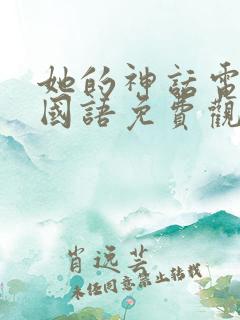 她的神話電
國語免費觀
肖远芸
未经同意禁止转载